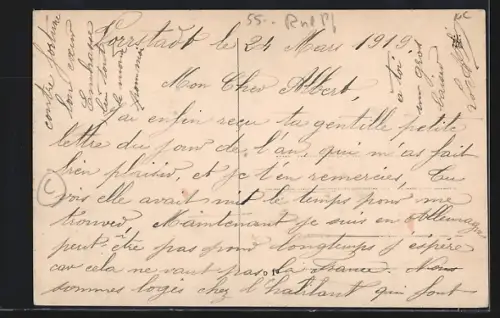 55 - Rhl Pf
Lorrstadt le 24 Mars 1919
Mon Cher Albert,
J'ai enfin reçu ta gentille petite
lettre du jour de l'an, qui m'as fait
bien plaisir, et je t'en remercies, Tu
vois elle avait mit le temps pour me
trouver, Maintenant je suis en Allemagne
peut-être pas pour longtemps j'espère
car cela ne vaut pas la France. Nous
sommes logés chez l'habitant qui sont
contre fortune
bon cœur
Embrasse
bien tout
le monde
pour moi
a toi
un gros
baiser
C